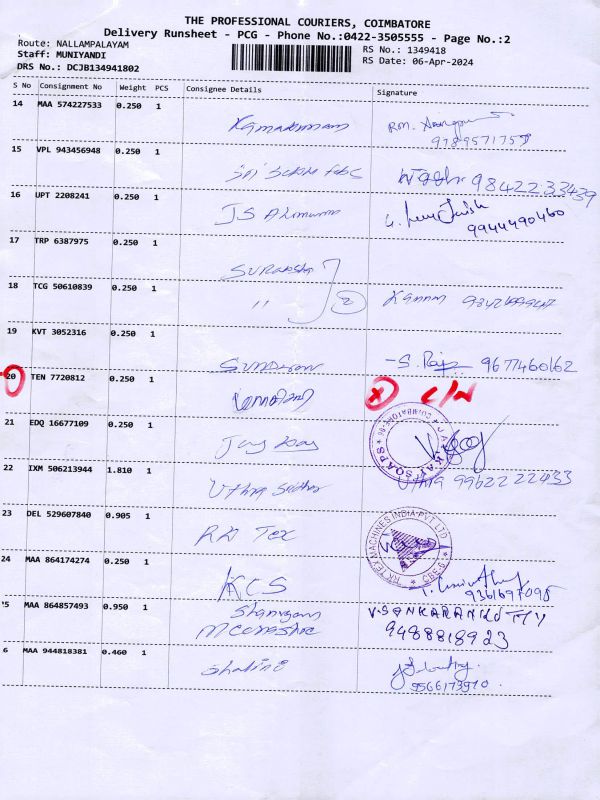 THE PROFESSIONAL COURIERS, COIMBATORE
Delivery Runsheet - PCG - Phone No.:0422-3505555 - Page No.:2
Route: NALLAMPALAYAM
RS No.: 1349418
Staff: MUNIYANDI
RS Date: 06-Apr-2024
DRS No.: DCJB134941802
S No Consignment No Weight PCS Consignee Details Signature
14 MAA 574227533 0.250 1
15 VPL 943456948 0.250 1
98422 33439
16 UPT 2208241 0.250 1
JS
9944490460
17 TRP 6387975 0.250 1
Suraksha
18 TCG 50610839 0.250 1
" 2 Kannan
19 KVT 3052316 0.250 1
Sundaram - S. Raja 9677460162
20 TEN 7720812 0.250 1
X C/N
21 EDQ 16677109 0.250 1
JAY KAY SOAPS * COIMBATORE
22 IXM 506213944 1.810 1
Uthra Sridhar Uthra 99622 22433
23 DEL 529607840 0.905 1
RK Tex
RK TEX MACHINES INDIA PVT LTD * CBE-6 *
24 MAA 864174274 0.250 1
KCS
9361697095
5 MAA 864857493 0.950 1
Shanmugam V. SANKARANKUTTY
9488818923
6 MAA 944818381 0.460 1
Shalini
9566173970